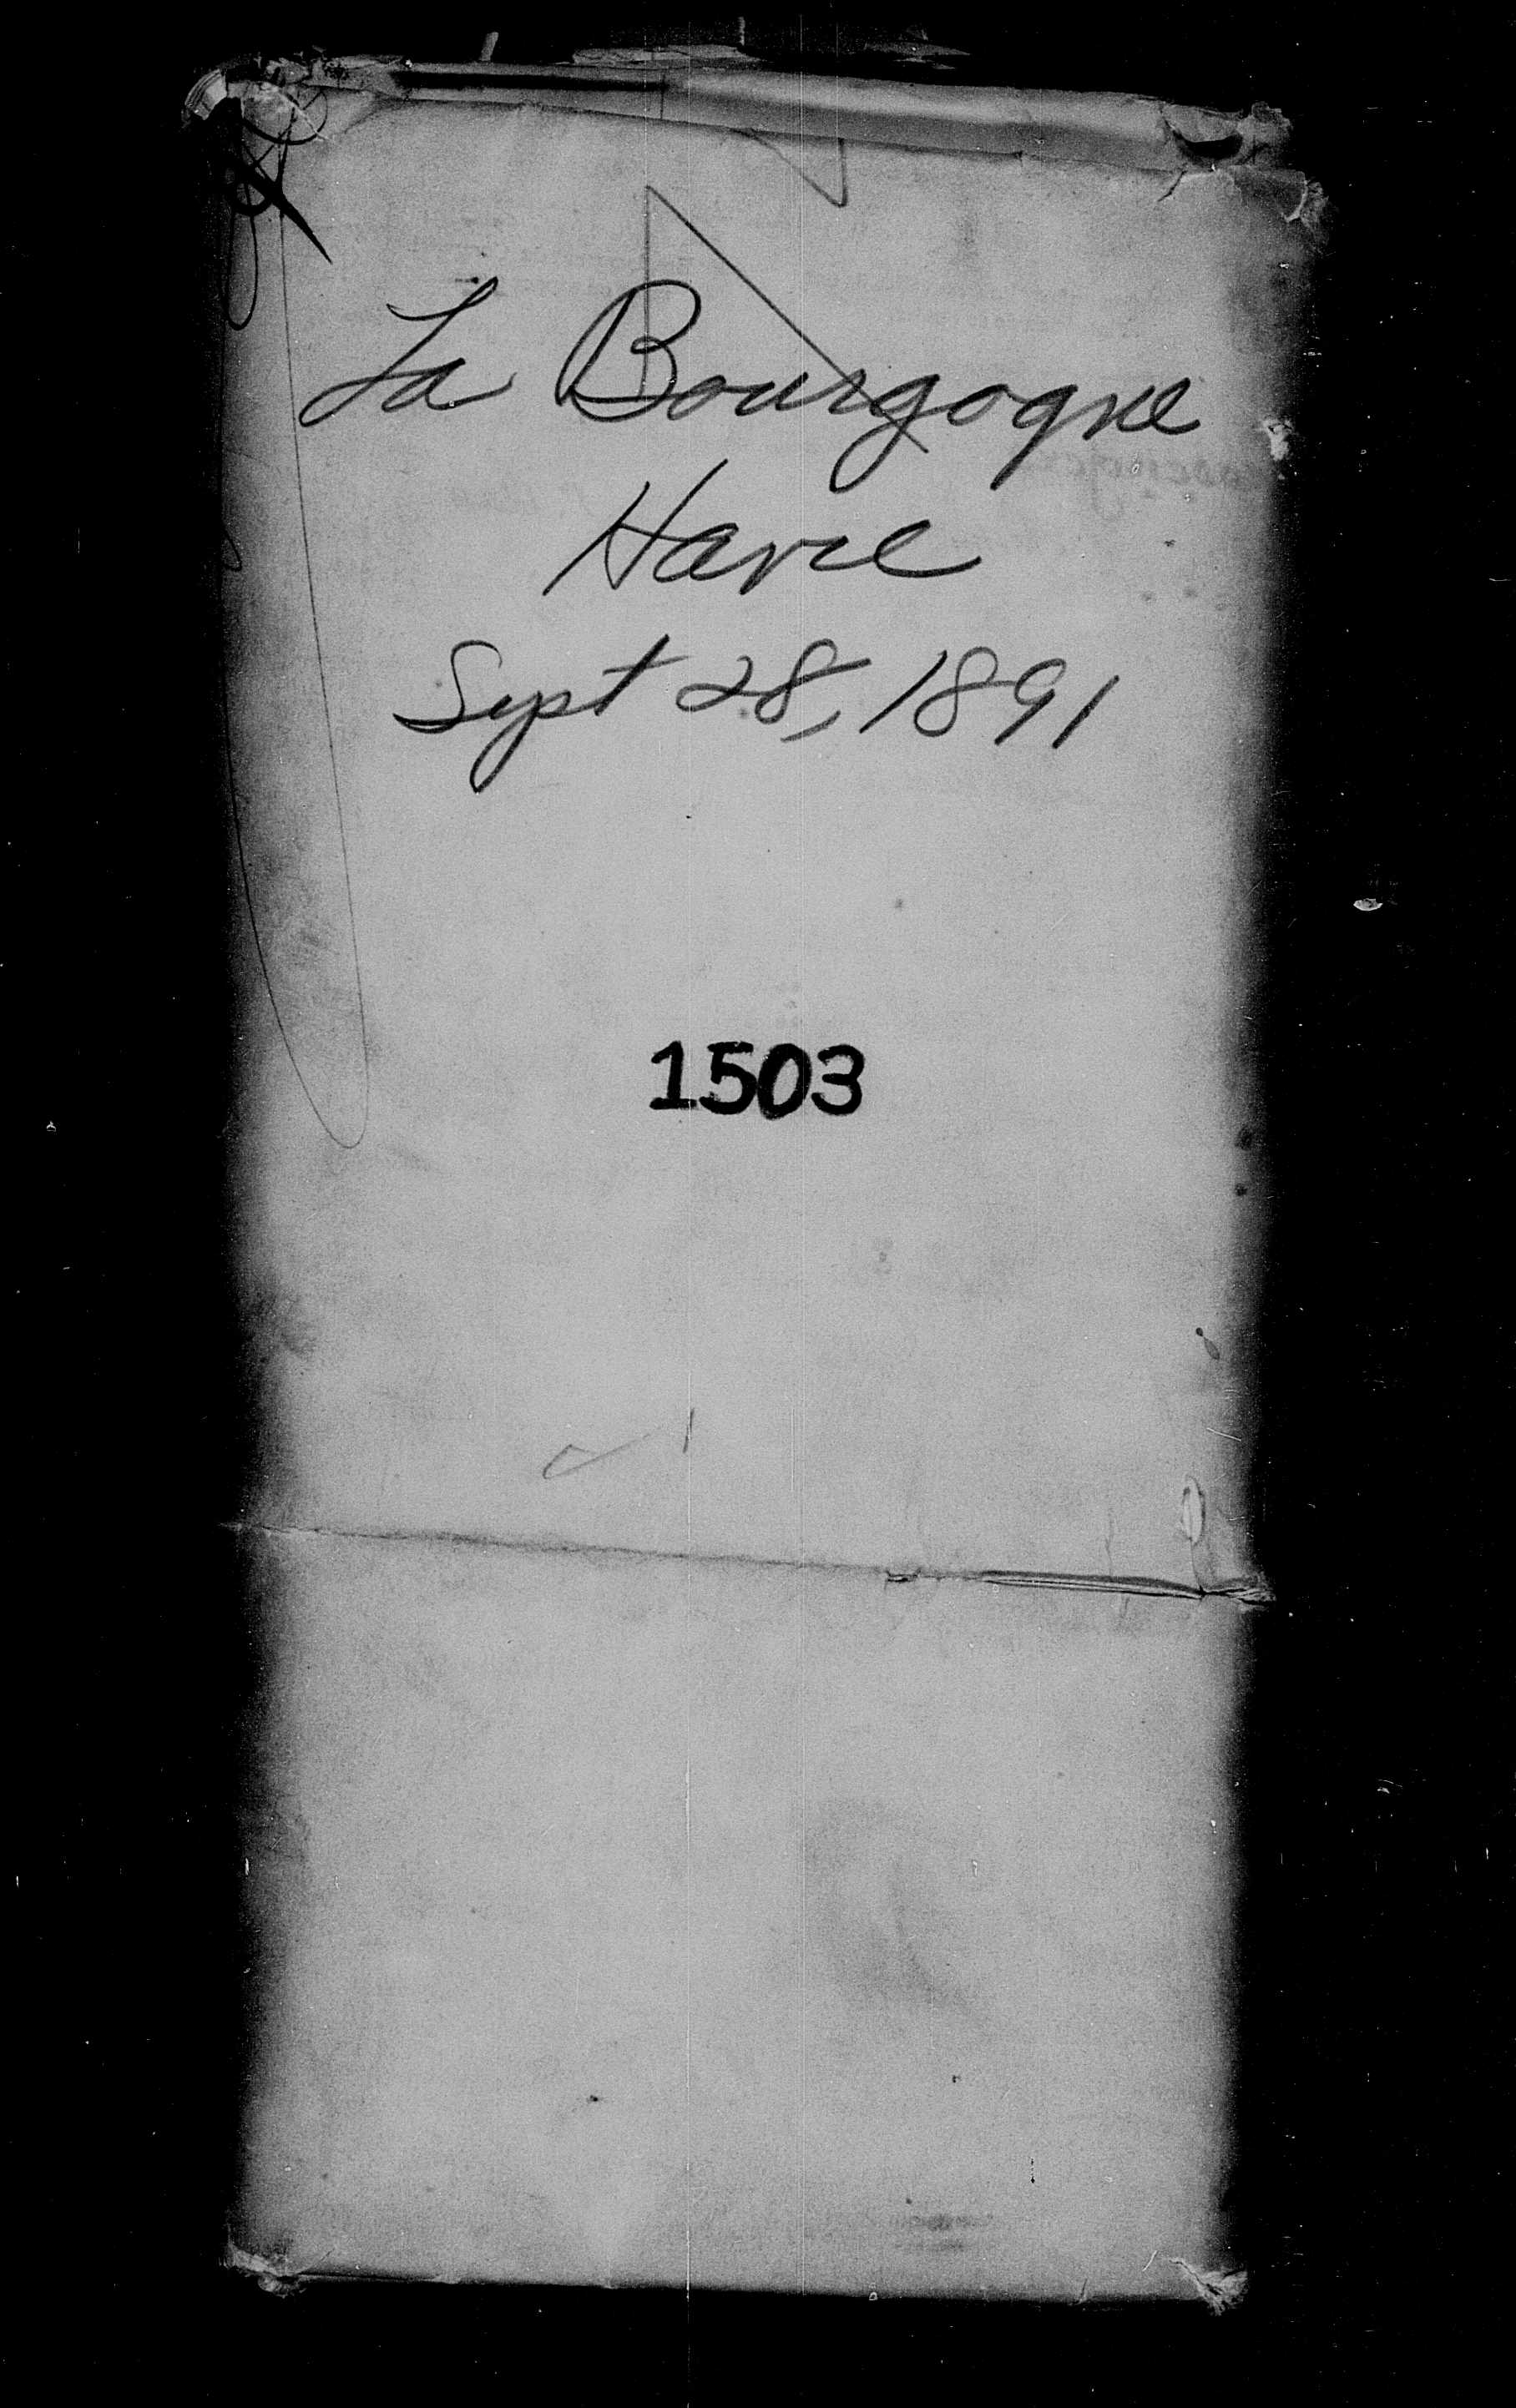 La Bourgogne
Havre
Sept 28, 1891
1503